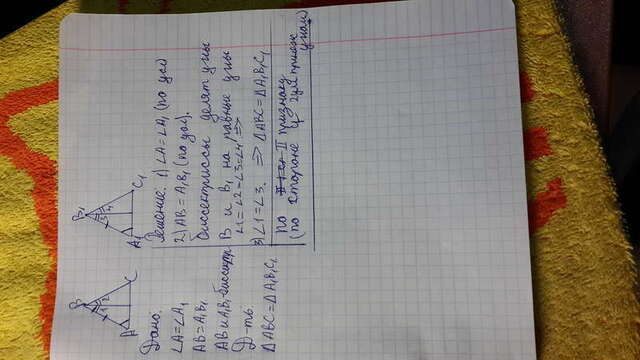 B
1 2
A C
B₁
3 4
A₁ C₁
Дано:
∠A=∠A₁
AB=A₁B₁
AB и A₁B₁-биссектр
Д-ть:
△ABC=△A₁B₁C₁
Решение: 1) ∠A=∠A₁ (по усл)
2) AB=A₁B₁ (по усл).
биссектриссы делят углы
B и B₁ на равные углы
∠1=∠2=∠3=∠4 =>
3) ∠1=∠3. => △ABC=△A₁B₁C₁
по II признаку
(по стороне и 2ум прилеж
углам)